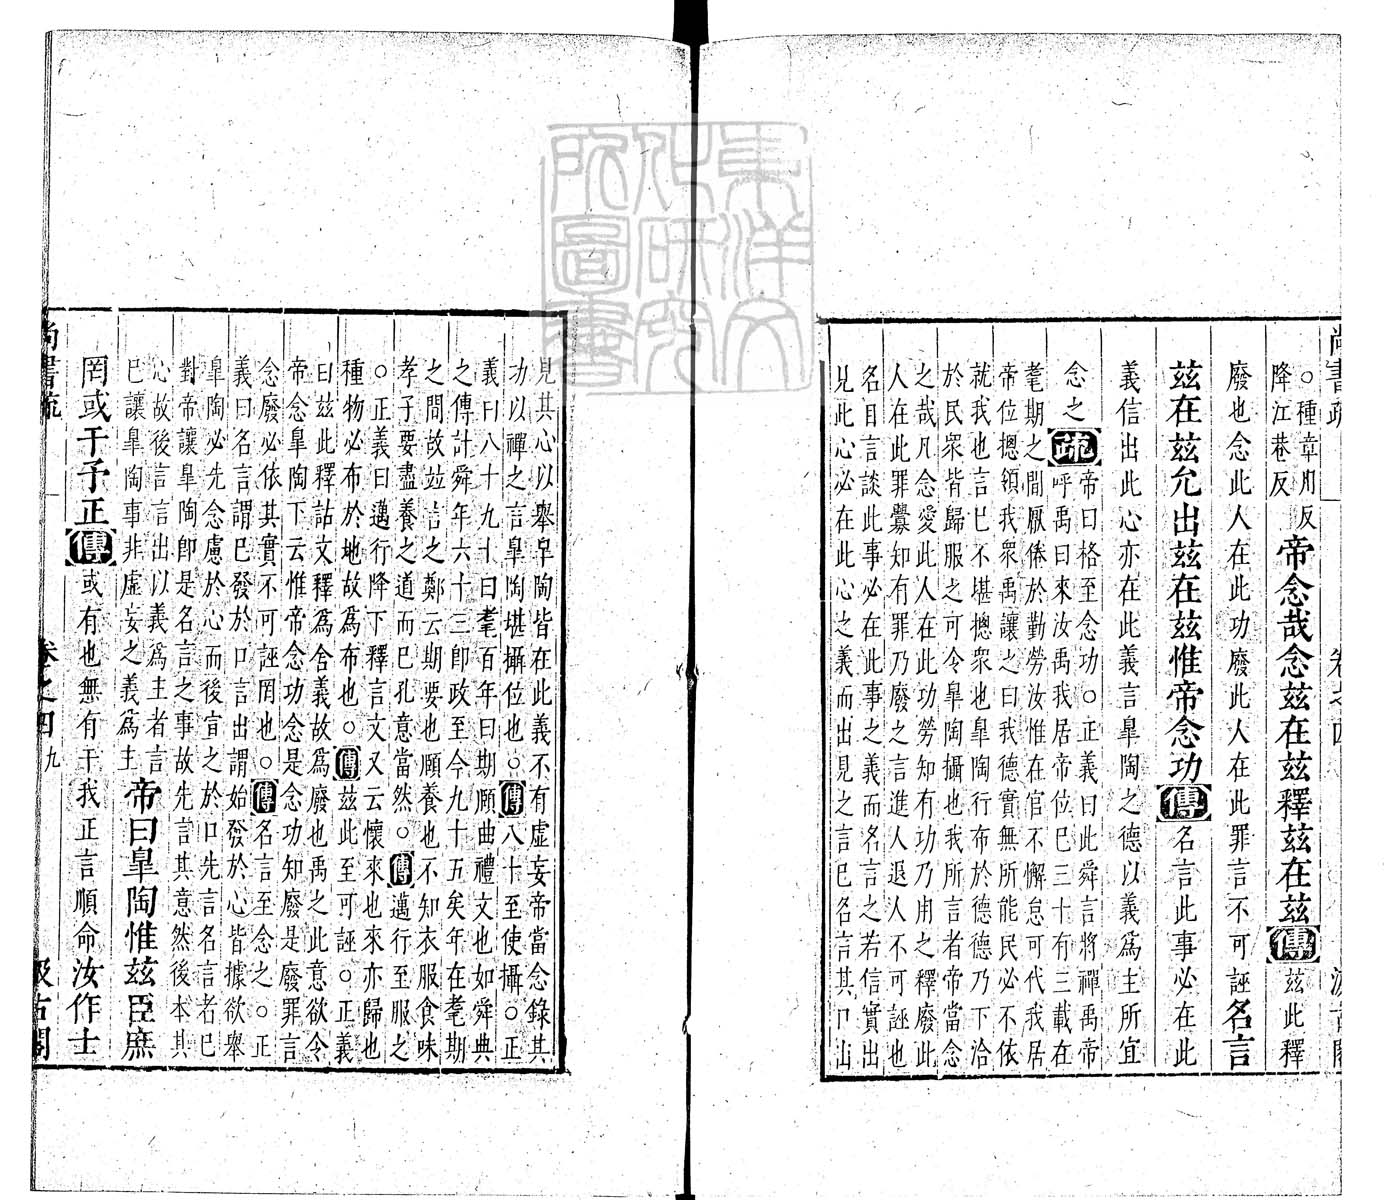 尚書疏 卷之四 汲古閣
○種章用反
降江巷反
帝念哉念茲在茲釋茲在茲傳茲此釋
廢也念此人在此功廢此人在此罪言不可誣名言
茲在茲允出茲在茲惟帝念功傳名言此事必在此
義信出此心亦在此義言臯陶之德以義爲主所宜
念之疏帝曰格至念功○正義曰此舜言將禪禹帝
呼禹曰來汝禹我居帝位巳三十有三載在
耄期之間厭倦於勤勞汝惟在官不懈怠可代我居
帝位揔領我衆禹讓之曰我德實無所能民必不依
就我也言巳不堪揔衆也臯陶行布於德德乃下洽
於民衆皆歸服之可令臯陶攝也我所言者帝當念
之哉凡念愛此人在此功勞知有功乃用之釋廢此
人在此罪釁知有罪乃廢之言進人退人不可誣也
名目言談此事必在此事之義而名言之若信實出
見此心必在此心之義而出見之言巳名言其口出
見其心以舉臯陶皆在此義不有虛妄帝當念錄其
功以禪之言臯陶堪攝位也○傳八十至使攝○正
義曰八十九十曰耄百年曰期頤曲禮文也如舜典
之傳計舜年六十三卽政至今九十五矣年在耄期
之間故竝言之鄭云期要也頤養也不知衣服食味
孝子要盡養之道而巳孔意當然○傳邁行至服之
○正義曰邁行降下釋言文又云懷來也來亦歸也
種物必布於地故爲布也○傳茲此至可誣○正義
曰茲此釋詁文釋爲舍義故爲廢也禹之此意欲令
帝念臯陶下云惟帝念功念是念功知廢是廢罪言
念廢必依其實不可誣罔也○傳名言至念之○正
義曰名言謂巳發於口言出謂始發於心皆據欲舉
臯陶必先念慮於心而後宣之於口先言名言者巳
對帝讓臯陶卽是名言之事故先言其意然後本其
心故後言言出以義爲主者言
巳讓臯陶事非虛妄之義爲主
帝曰臯陶惟茲臣庶
罔或干予正傳或有也無有干我正言順命汝作士
尚書疏 卷之四 九 汲古閣
東洋文化研究所圖書